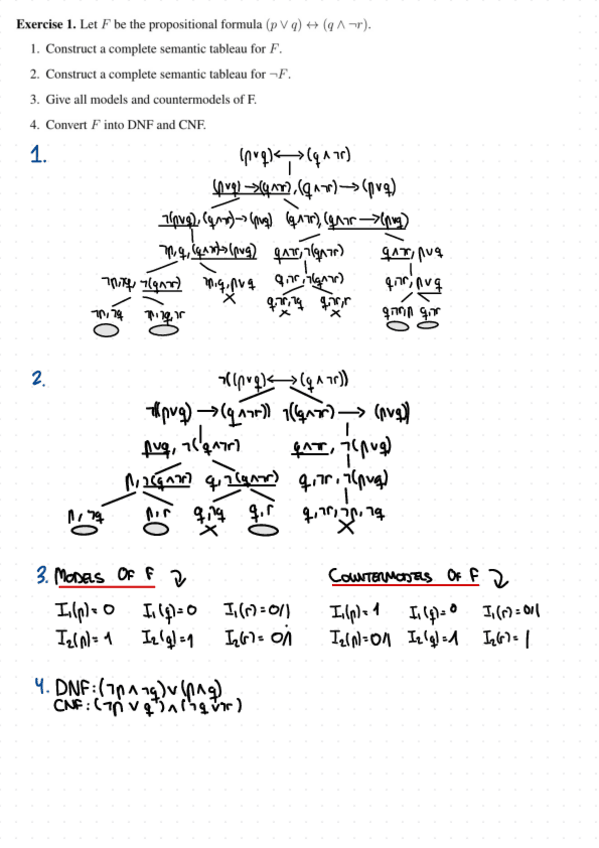 Exercise 1. Let F be the propositional formula (p ∨ q) ↔ (q ∧ ¬r).
1. Construct a complete semantic tableau for F.
2. Construct a complete semantic tableau for ¬F.
3. Give all models and countermodels of F.
4. Convert F into DNF and CNF.
1.
(p∨q)⟷(q∧¬r)
(p∨q)→(q∧¬r), (q∧¬r)→(p∨q)
¬(p∨q), (q∧¬r)→(p∨q) (q∧¬r), (q∧¬r→(p∨q)
(q∧¬r)→(p∨q) q∧¬r, ¬(q∧¬r) q∧¬r, p∨q
¬(q∧¬r) q,¬r,¬(q∧¬r) q,¬r, p∨q
q,¬r,¬q q,¬r,r
× × ×
2.
¬((p∨q)⟷(q∧¬r))
¬((p∨q)→(q∧¬r)) ¬((q∧¬r)→(p∨q))
p∨q, ¬(q∧¬r) q∧¬r, ¬(p∨q)
p,¬(q∧¬r) q,¬(q∧¬r) q,¬r,¬(p∨q)
p,¬q p,r q,¬q q,r q,¬r,¬p,¬q
× ×
3. MODELS OF F COUNTERMODELS OF F
I₁(p)=0 I₁(q)=0 I₁(r)=0/1 I₁(p)=1 I₁(q)=0 I₁(r)=0/1
I₂(p)=1 I₂(q)=1 I₂(r)=0/1 I₂(p)=0/1 I₂(q)=1 I₂(r)=1
4. DNF: (¬p∧¬q)∨(p∧q)
CNF: (¬p∨q)∧(¬q∨¬r)